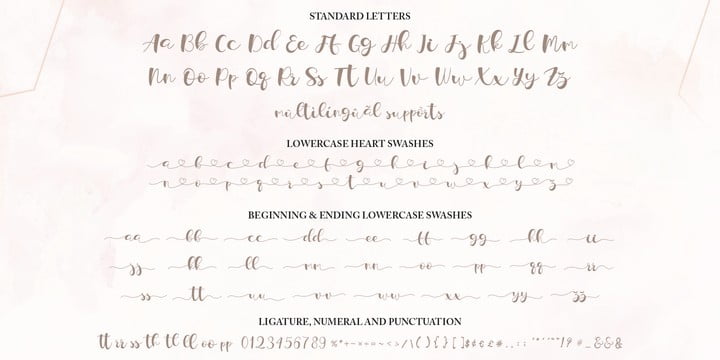 STANDARD LETTERS
Aa Bb Cc Dd Ee Ff Gg Hh Ii Jj Kk Ll Mm
Nn Oo Pp Qq Rr Ss Tt Uu Vv Ww Xx Yy Zz
multilingual supports
LOWERCASE HEART SWASHES
a b c d e f g h i j k l m
n o p q r s t u v w x y z
BEGINNING & ENDING LOWERCASE SWASHES
aa bb cc dd ee ff gg hh ii
jj kk ll mm nn oo pp qq rr
ss tt uu vv ww xx yy zz
LIGATURE, NUMERAL AND PUNCTUATION
tt rr ss th tl ll oo pp 0123456789